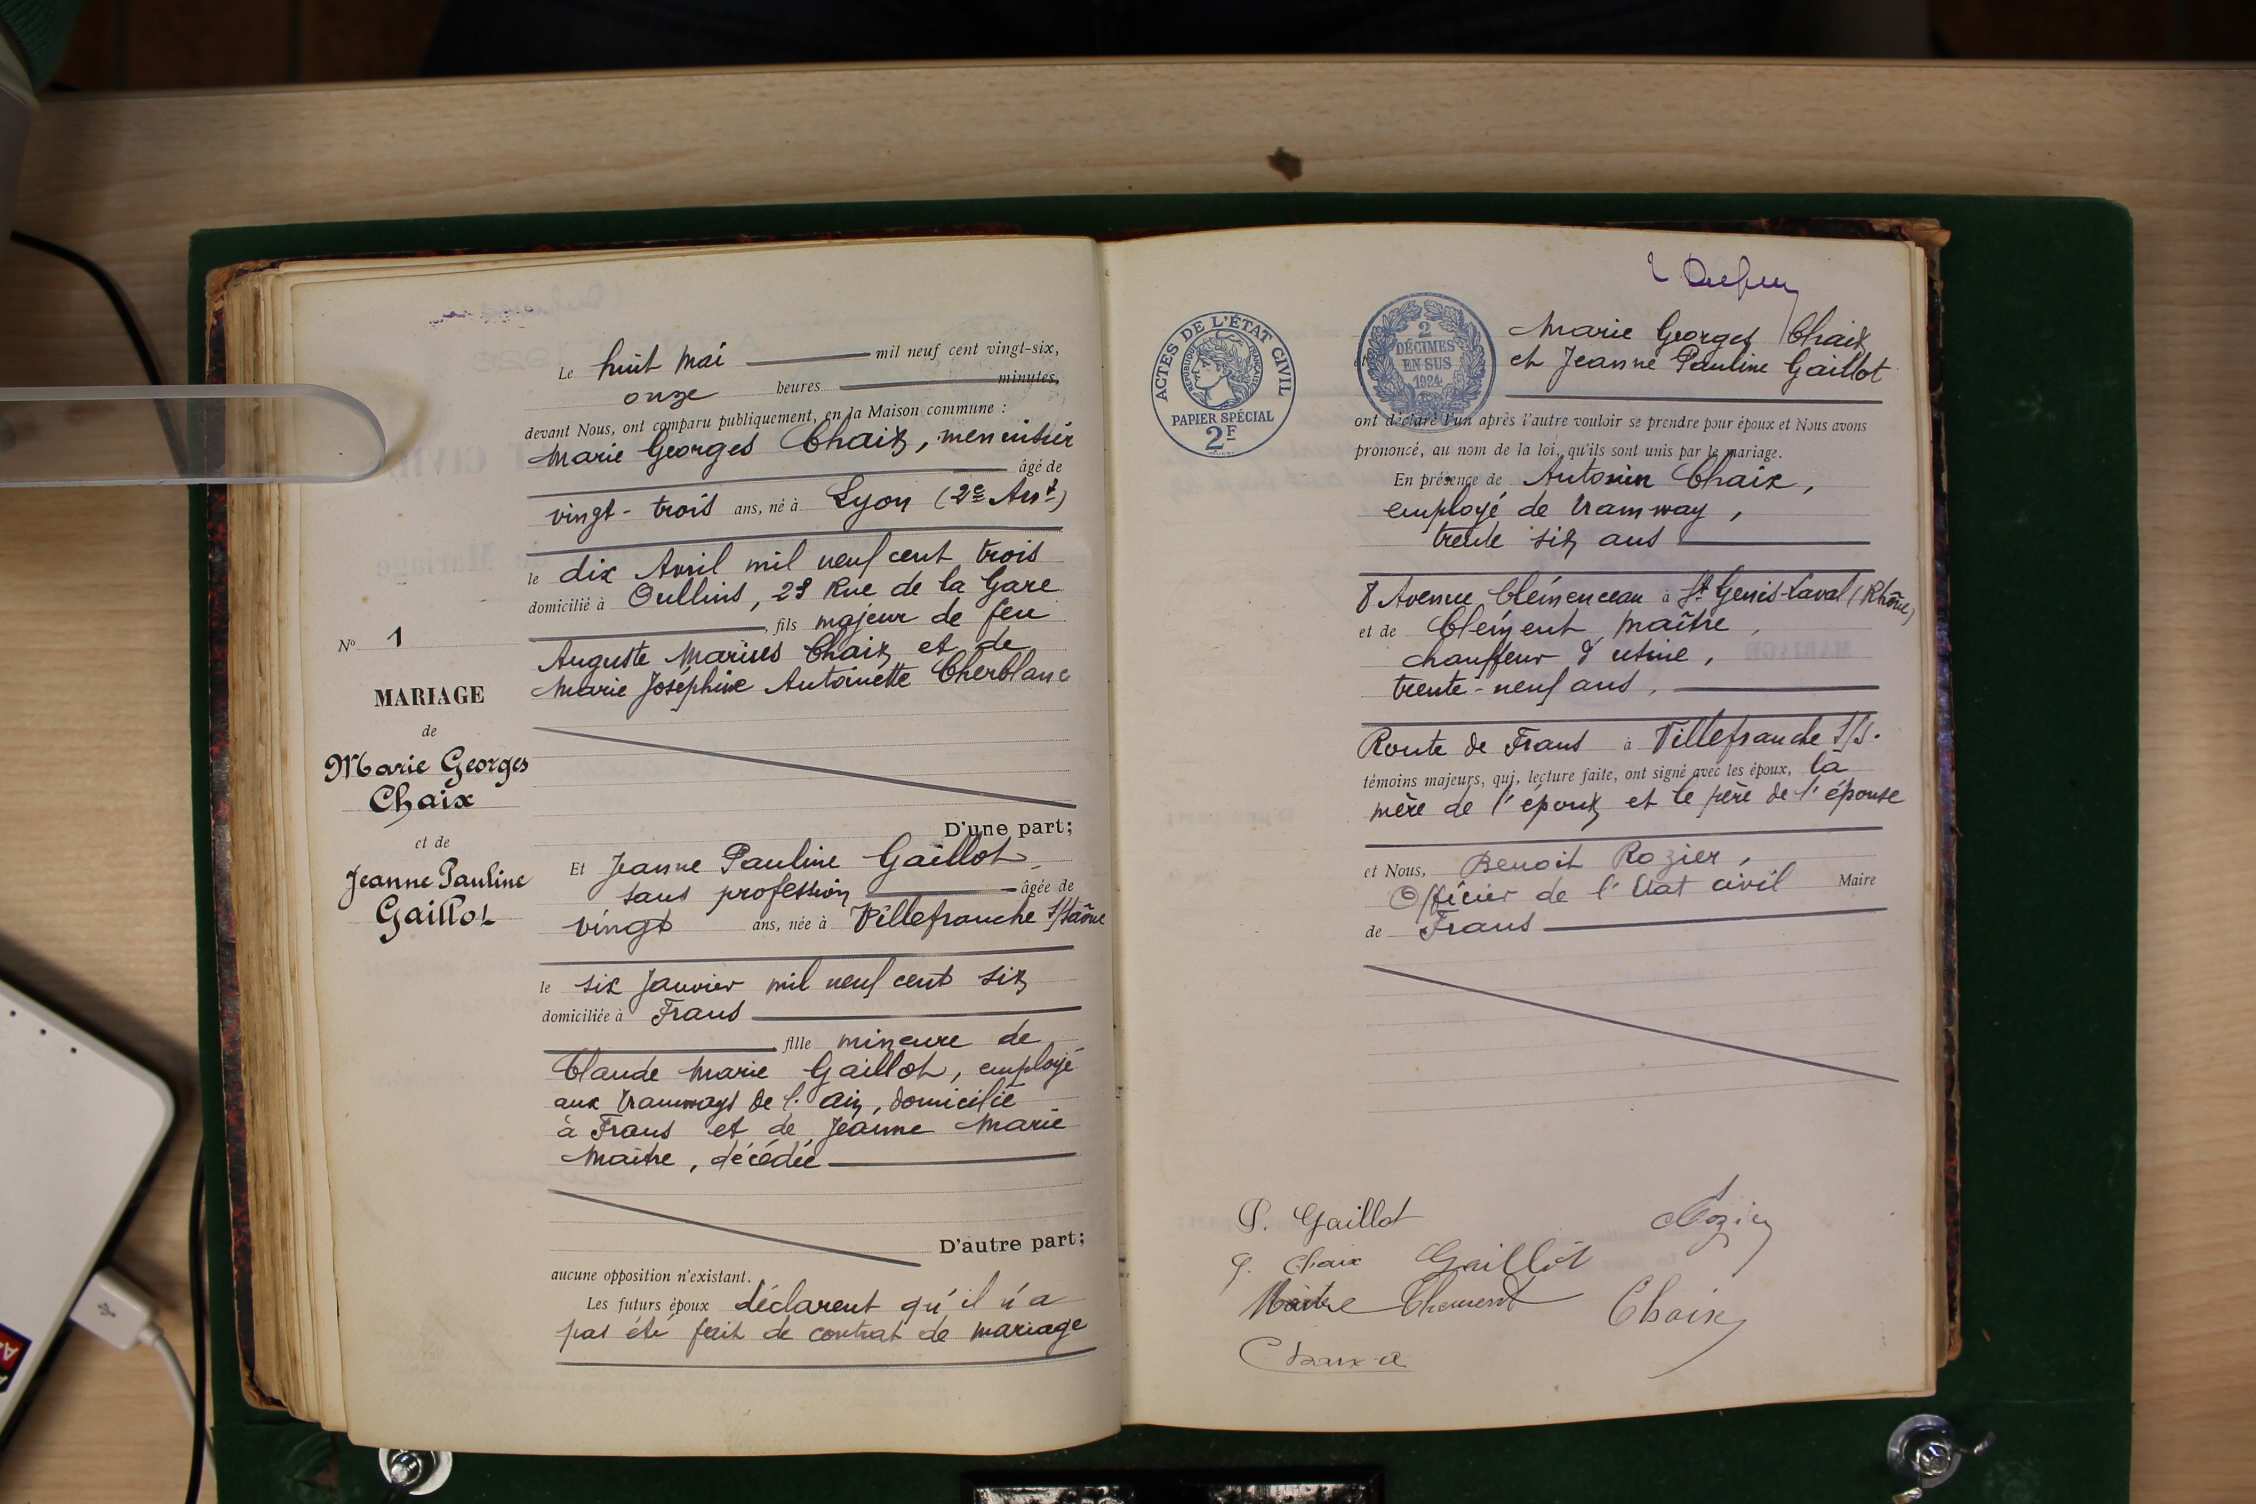 Le huit mai mil neuf cent vingt-six,
onze heures minutes,
devant Nous, ont comparu publiquement, en la Maison commune :
Marie Georges Chaix, menuisier
âgé de
vingt-trois ans, né à Lyon (2e Arrt)
le dix Avril mil neuf cent trois
domicilié à Oullins, 29 Rue de la Gare
, fils majeur de feu
Auguste Marius Chaix et de
Marie Joséphine Antoinette Cherblanc
No 1
MARIAGE
de
Marie Georges
Chaix
et de
Jeanne Pauline
Gaillot
D'une part;
Et Jeanne Pauline Gaillot
sans profession âgée de
vingt ans, née à Villefranche s/Saône
le six Janvier mil neuf cent six
domiciliée à Frans
fille mineure de
Claude Marie Gaillot, employé
aux tramways de l'ain, domicilié
à Frans et de Jeanne Marie
Maître, décédée
D'autre part;
aucune opposition n'existant.
Les futurs époux déclarent qu'il n'a
pas été fait de contrat de mariage
ACTES DE L'ÉTAT CIVIL
RÉPUBLIQUE FRANÇAISE
PAPIER SPÉCIAL
2F
2
DÉCIMES
EN SUS
1924
Marie Georges Chaix
et Jeanne Pauline Gaillot
ont déclaré l'un après l'autre vouloir se prendre pour époux et Nous avons
prononcé, au nom de la loi, qu'ils sont unis par le mariage.
En présence de Antonin Chaix,
employé de tramway,
trente six ans
8 Avenue Clémenceau à St Genis-Laval (Rhône)
et de Clément Maître,
chauffeur d'usine,
trente-neuf ans,
Route de Frans à Villefranche s/s.
témoins majeurs, qui, lecture faite, ont signé avec les époux, la
mère de l'époux et le père de l'épouse
et Nous, Benoit Rozier,
Officier de l'Etat civil Maire
de Frans
P. Gaillot
Rozier
g. Chaix Gaillot
Maitre Clement Chaix
Chaix a